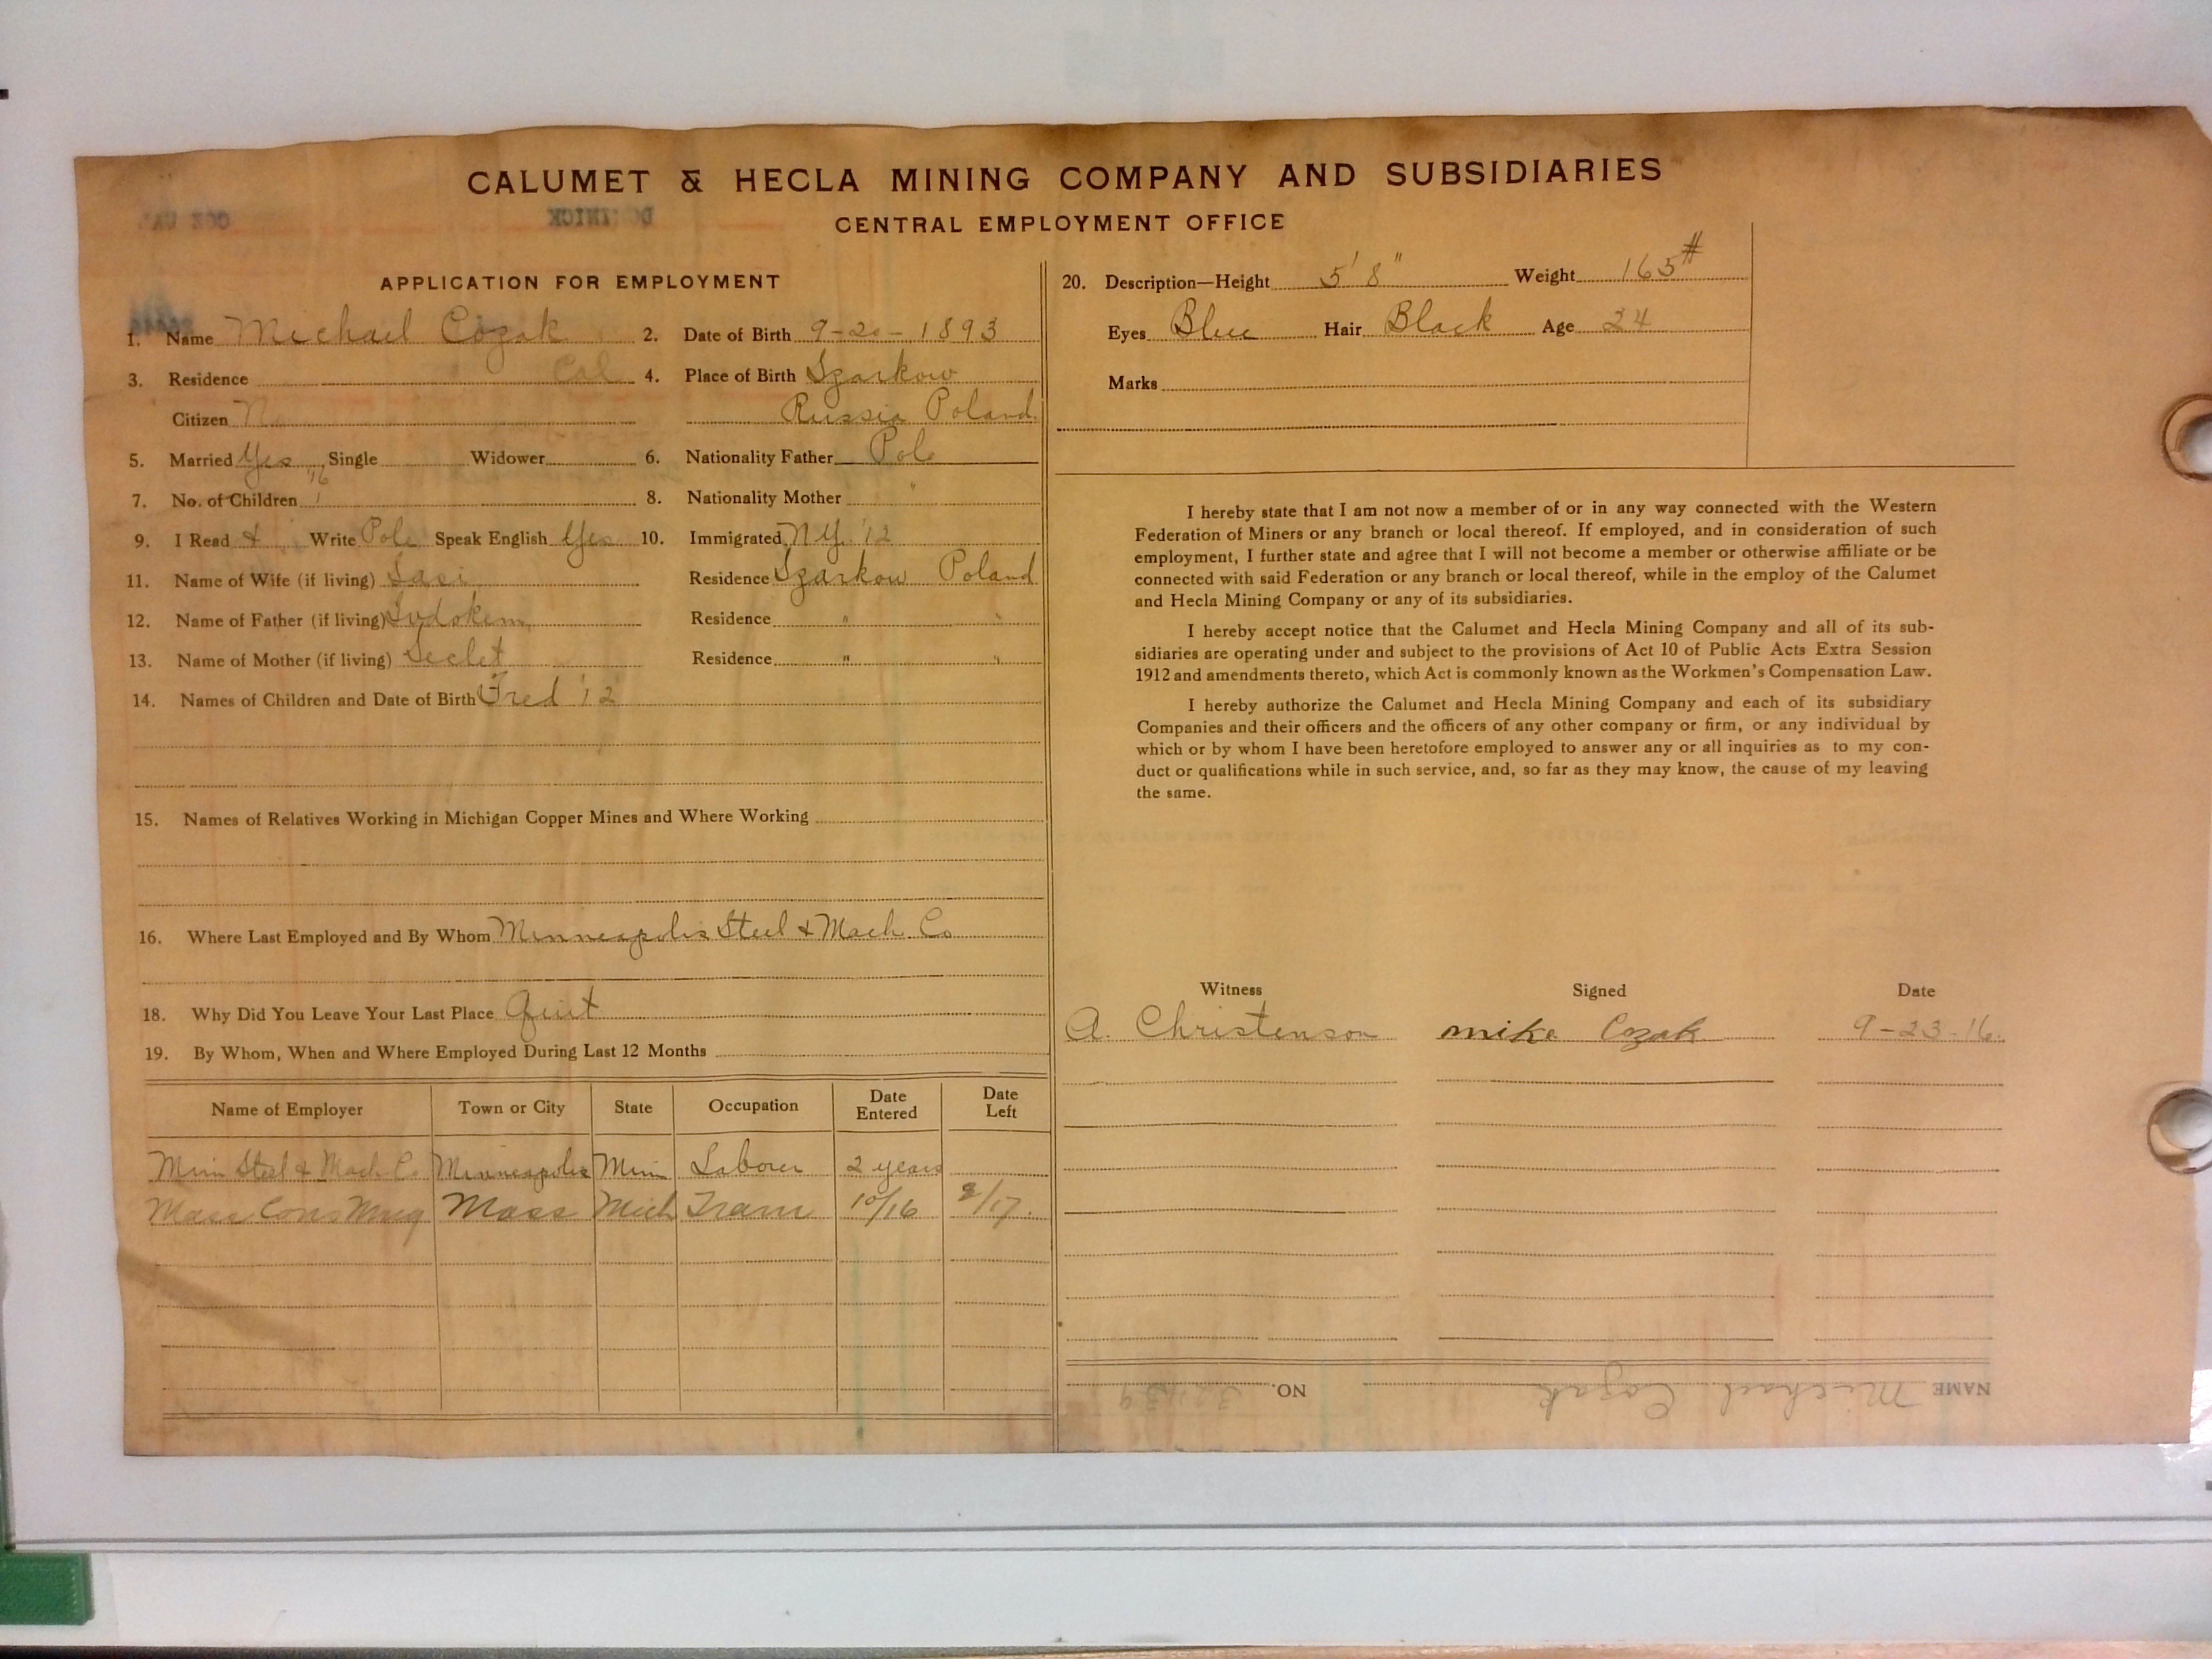 CALUMET & HECLA MINING COMPANY AND SUBSIDIARIES
CENTRAL EMPLOYMENT OFFICE
DOMINICK
APPLICATION FOR EMPLOYMENT
1. Name Michael Cozak
2. Date of Birth 9-20-1893
3. Residence Cal
4. Place of Birth Szarkow
Citizen No
Russia Poland
5. Married Yes '16 Single Widower
6. Nationality Father Pole
7. No. of Children 1
8. Nationality Mother "
9. I Read & Write Pole Speak English Yes
10. Immigrated N.Y. '12
11. Name of Wife (if living)
Residence Szarkow Poland
12. Name of Father (if living)
Residence " "
13. Name of Mother (if living)
Residence " "
14. Names of Children and Date of Birth Fred '12
15. Names of Relatives Working in Michigan Copper Mines and Where Working
16. Where Last Employed and By Whom Minneapolis Steel & Mach. Co
18. Why Did You Leave Your Last Place Quit
19. By Whom, When and Where Employed During Last 12 Months
Name of Employer Town or City State Occupation Date Entered Date Left
Minn Steel & Mach Co Minneapolis Minn Laborer 2 years
Mass Cons Mng Mass Mich Tram 10/16 8/17.
20. Description—Height 5' 8" Weight 165#
Eyes Blue Hair Black Age 24
Marks
I hereby state that I am not now a member of or in any way connected with the Western
Federation of Miners or any branch or local thereof. If employed, and in consideration of such
employment, I further state and agree that I will not become a member or otherwise affiliate or be
connected with said Federation or any branch or local thereof, while in the employ of the Calumet
and Hecla Mining Company or any of its subsidiaries.
I hereby accept notice that the Calumet and Hecla Mining Company and all of its sub-
sidiaries are operating under and subject to the provisions of Act 10 of Public Acts Extra Session
1912 and amendments thereto, which Act is commonly known as the Workmen's Compensation Law.
I hereby authorize the Calumet and Hecla Mining Company and each of its subsidiary
Companies and their officers and the officers of any other company or firm, or any individual by
which or by whom I have been heretofore employed to answer any or all inquiries as to my con-
duct or qualifications while in such service, and, so far as they may know, the cause of my leaving
the same.
Witness Signed Date
A. Christenson mike Cozak 9-23-16.
NAME Michael Cozak NO.